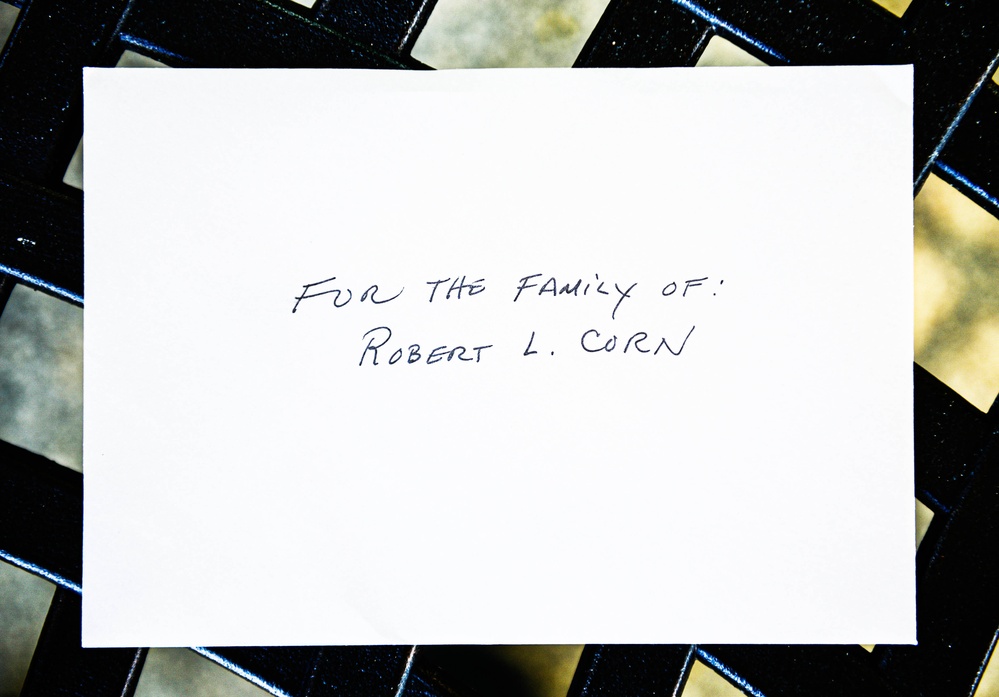 FOR THE FAMiLY OF:
ROBERT L. CORN